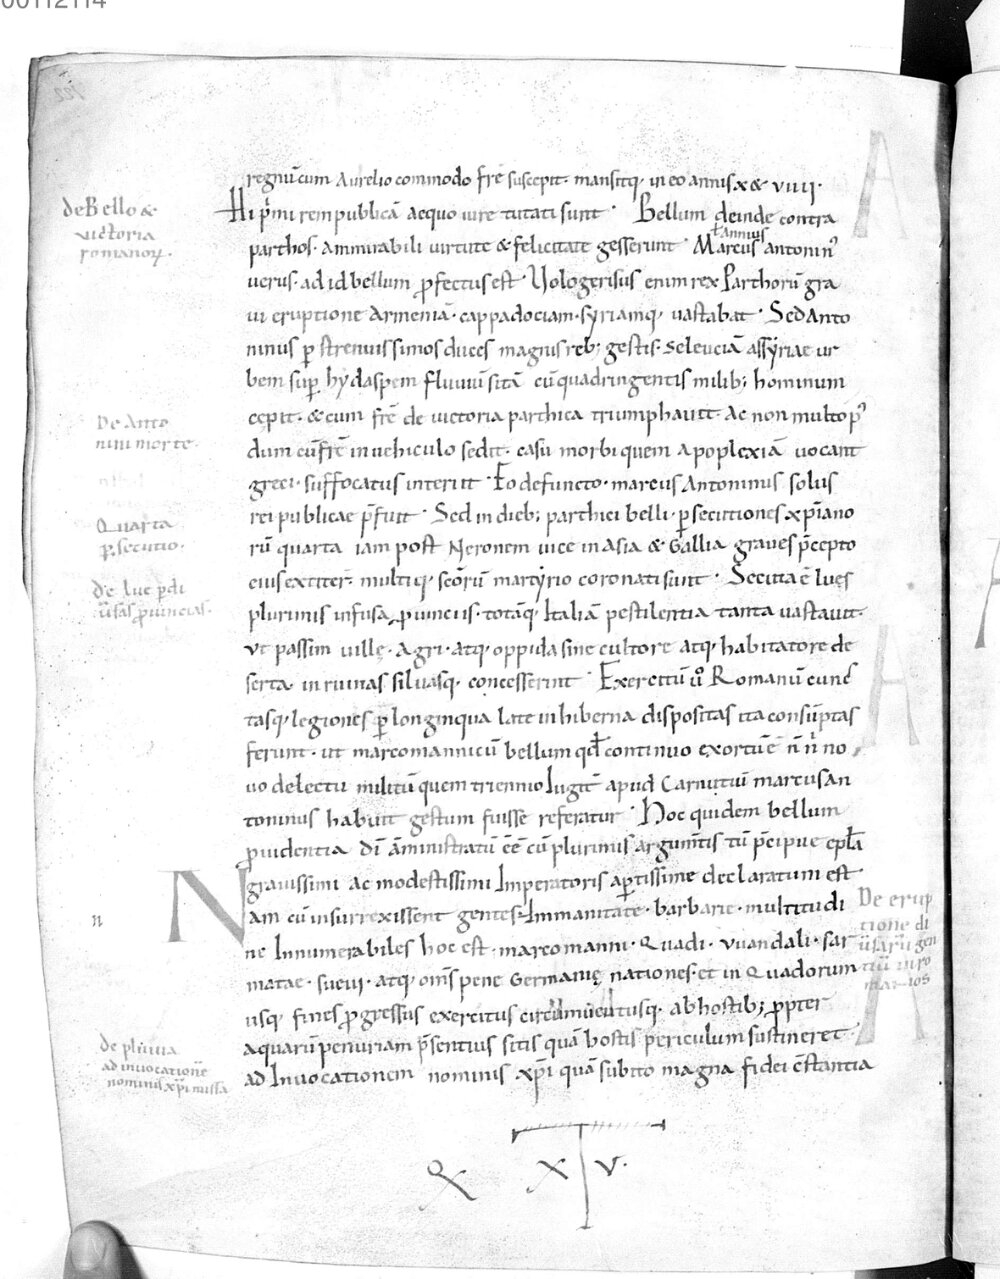 00112114
regnū cum Aurelio commodo frē suscepit· mansitq; in eo annis x & viiii·
Hi p̄mi rem publicā aequo iure tutati sunt· Bellum deinde contra
de Bello &
victoria
romanoꝝ·
ł annius
parthos· ammirabili uirtute & felicitate gesserunt· Marcus antonin᾽
uerus· ad id bellum ꝓfectus est· Vologerisus enim rex Parthorū gra
ui eruptione Armeniā· cappadociam· syriamq; uastabat· Sed Anto
ninus ꝑ strenuissimos duces magnis reb; gestis· seleuciā assyriae ur
bem suꝑ hydaspem fluuiū sitā cū quadringentis milib; hominum
cepit· & cum frē de uictoria parthica triumphauit· Ac non multo p᾽
De Anto
nini morte·
dum cū frē in uehiculo sedit· casu morbi quem apoplexiā uocant
greci· suffocatus interiit· Eo defuncto· marcus Antoninus solus
rei publicae p̄fuit· Sed in dieb; parthici belli· ꝑsecutiones xp̄iano
Quarta
ꝑsecutio·
rū quarta iam post Neronem uice in Asia & Gallia graues p̄cepto
eius extiter̄· multiq; sc̄orū martyrio coronati sunt· Secuta ē lues
de lue ꝑ di
uersas ꝓuincias·
plurimis infusa ꝓuinciis· totāq; Italiā pestilentia tanta uastauit·
Vt passim uillę· Agri· atq; oppida sine cultore atq; habitatore de
serta· in ruinas siluasq; concesserint· Exercitū u͛ Romanū cunc
tasq; legiones ꝑ longinqua late in hiberna dispositas ita consūptas
ferunt· ut marcomannicū bellum qd̄ continuo exortū ē n̄ n̄ no
uo delectu militū quem triennio Iugit̄ apud Carnutiū marcus An
toninus habuit gestum fuisse referatur· Hoc quidem bellum
ꝓuidentia dī āministratū ēē cū plurimis argum̄tis tū p̄cipue ep̄la
grauissimi ac modestissimi Imperatoris aꝑtissime declaratum est
n
Nam cū insurrexissent gentes Immanitate· barbarie· multitudi
De erup
tione di
uersarū gen
tiū in ro
manos
ne Innumerabiles hoc est· marcomanni· Quadi· vuandali· sar
matae· sueui· atq; om̄s pene Germanię nationes· et in Quadorum
usq; fines ꝓgressus exercitus circumuentusq; ab hostib; ꝓpter
aquarū penuriam p̄sentius sitis quā hostis periculum sustineret·
de pluuia
ad inuocationē
nominis xp̄i missa
ad Inuocationem nominis xp̄i quā subito magna fidei c̄stantia
X V·